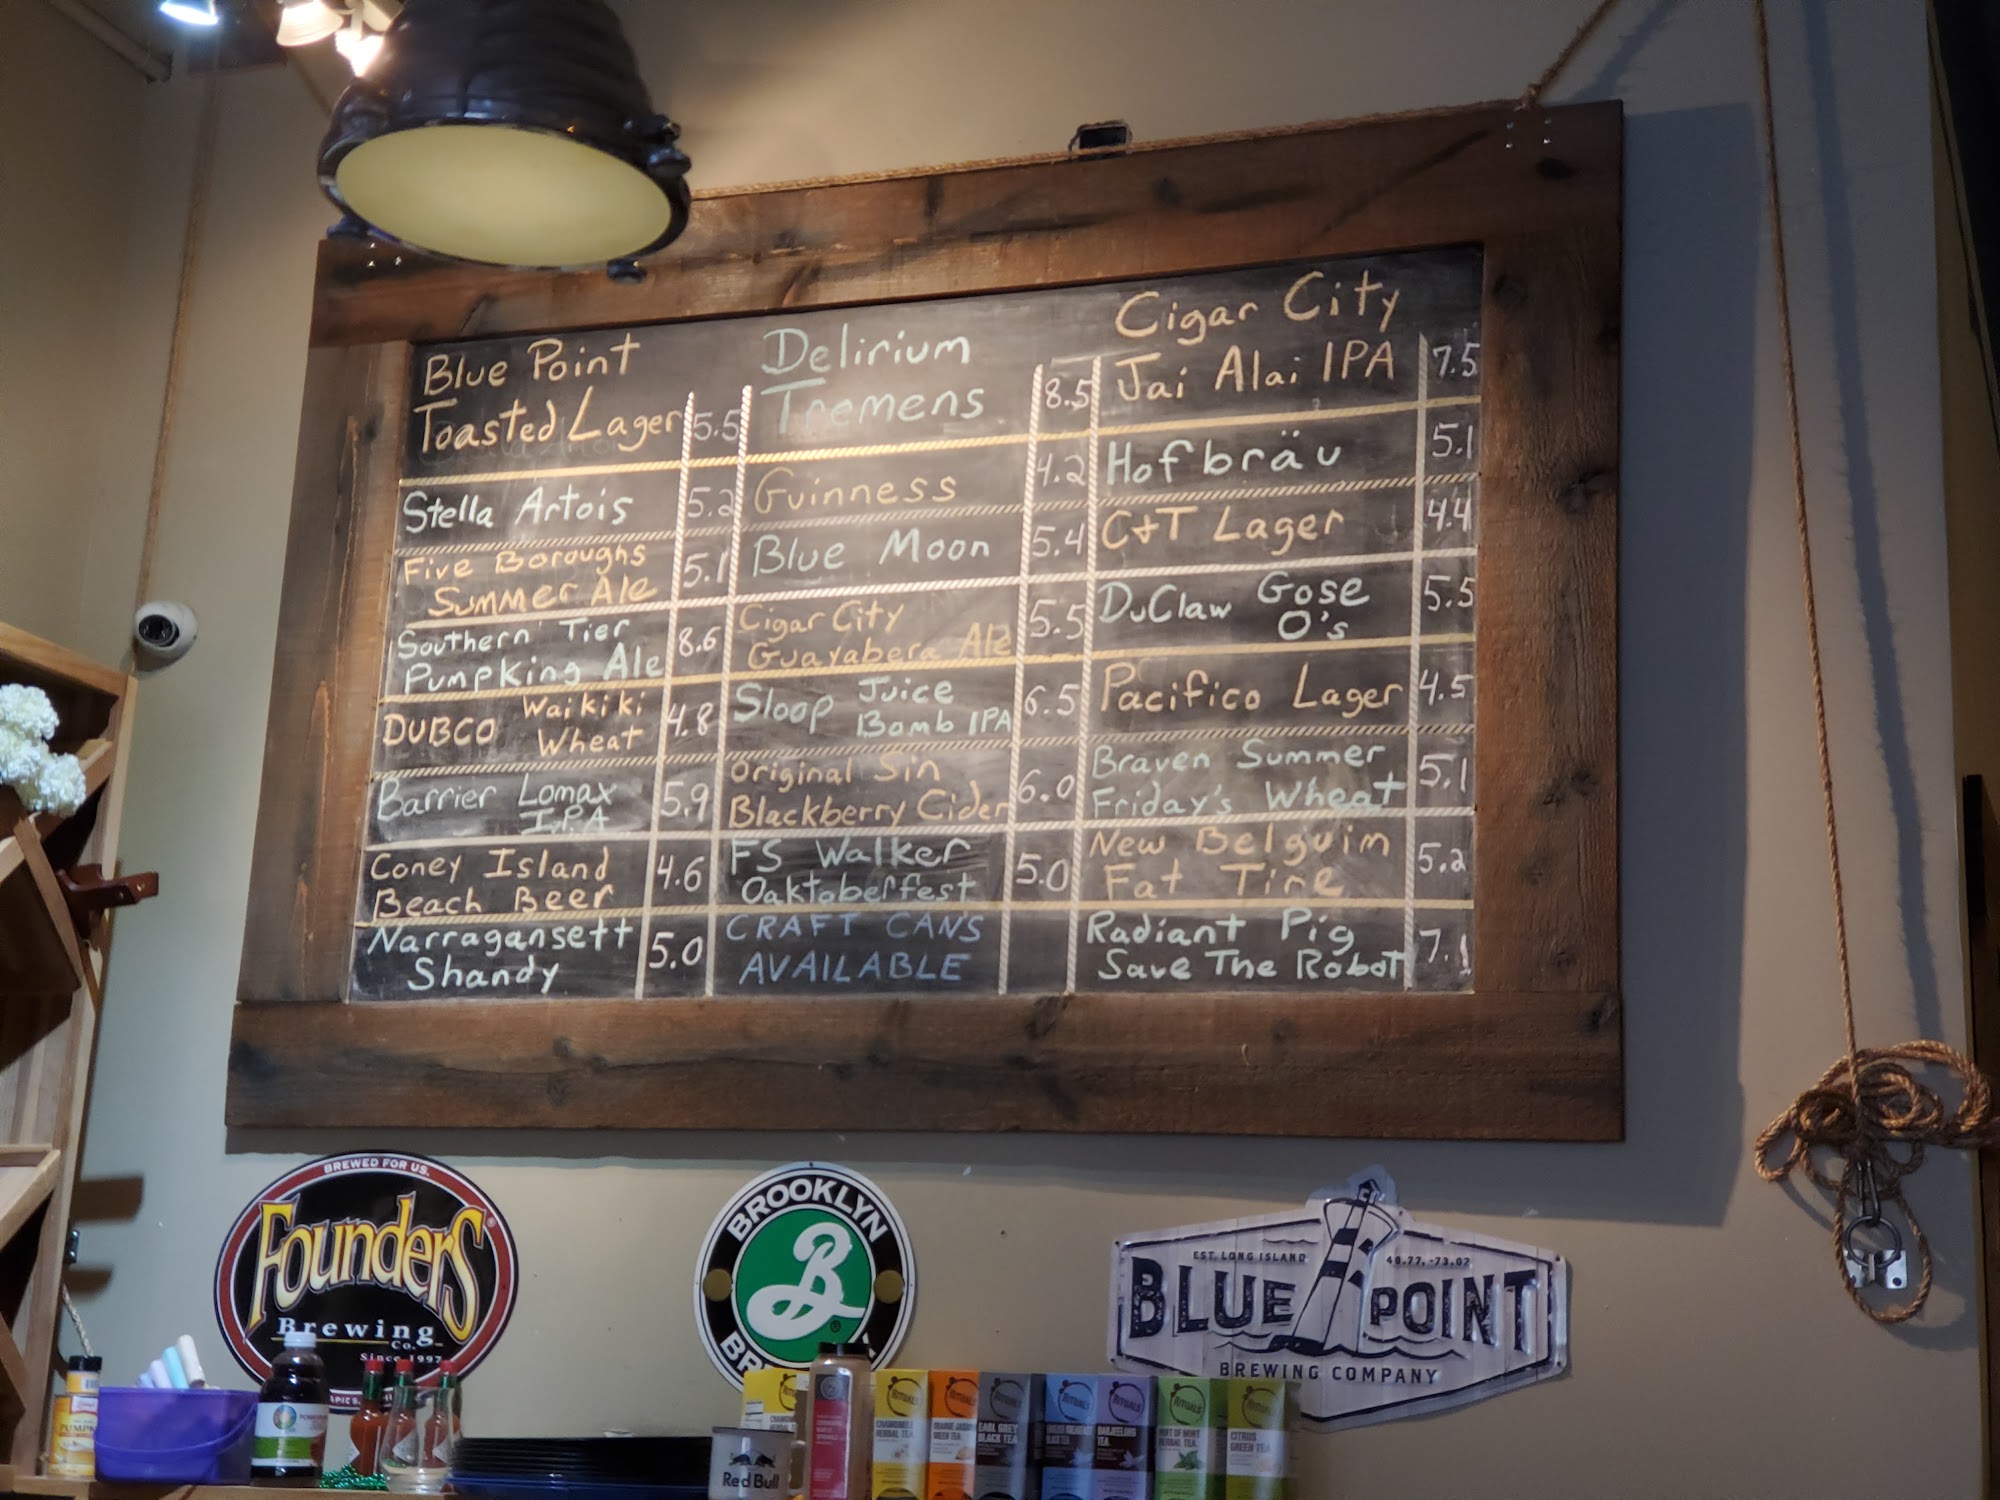 Blue Point
Toasted Lager 5.5
Stella Artois 5.2
Five Boroughs
Summer Ale 5.1
Southern Tier
Pumpking Ale 8.6
DUBCO Waikiki
Wheat 4.8
Barrier Lomax
I.P.A 5.9
Coney Island
Beach Beer 4.6
Narragansett
Shandy 5.0
Delirium
Tremens 8.5
Guinness 4.2
Blue Moon 5.4
Cigar City
Guayabera Ale 5.5
Sloop Juice
Bomb IPA 6.5
Original Sin
Blackberry Cider 6.0
FS Walker
Oaktoberfest 5.0
CRAFT CANS
AVAILABLE
Cigar City
Jai Alai IPA 7.5
Hofbräu 5.1
C+T Lager 4.4
DuClaw Gose
O's 5.5
Pacifico Lager 4.5
Braven Summer
Friday's Wheat 5.1
New Belguim
Fat Tire 5.2
Radiant Pig
Save The Robot 7.1
BREWED FOR US.
Founders
Brewing
Co.
Since 1997
BROOKLYN
B
EST. LONG ISLAND
BLUE POINT
BREWING COMPANY
Red Bull
RITUALS
HERBAL TEA
RITUALS
GREEN TEA
EARL GREY
BLACK TEA
RITUALS
DARJEELING
TEA
RITUALS
HERBAL TEA
RITUALS
CITRUS
GREEN TEA